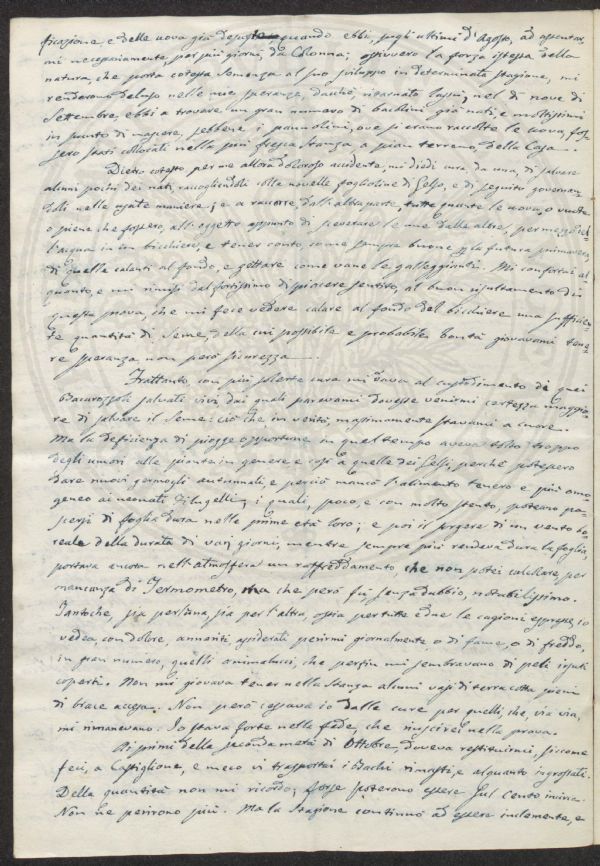 ficazione, e delle uova già deposte quando ebbi, sugli ultimi d'Agosto, ad assentar-
mi necessariamente per più giorni, da Colonna; ovvero la forza istessa della
natura, che porta cotesta Semenza al suo sviluppo in determinata stagione, mi
renderono deluso nelle mie speranze, dacchè, ritornato lassù, nel dì nove di
Settembre, ebbi a trovare un gran numero di bachini già nati, e moltissimi
in punto di nascere, sebbene i pannolini, ove si erano raccolte le uova, fos-
sero stati collocati nella più fresca Stanza a pian terreno, della Casa.
Dietro cotesto per me allora doloroso accidente, mi diedi cura, da una, di salvare
alcuni pochi dei nati, raccogliendoli colle novelle foglioline di Gelso, e di seguito governan-
doli nelle usate maniere; e a raccorre, dall'altra parte, tutte quante le uova, o vuote
o piene che fossero, all'oggetto appunto di sceverare le une dalle altre, per mezzo del-
l'acqua in un bicchiere, e tener conto, come sempre buone per la futura primavera,
di quelle calanti al fondo, e gettare come vane le galleggianti. Mi confortai al-
quanto, e mi rimisi dal fortissimo di piacere sentito, al buon risultamento di
questa prova, che mi fece vedere calare al fondo del bicchiere una sufficien-
te quantità di Seme, della cui possibile e probabile bontà giovavami tene-
re speranza non però sicurezza.
Frattanto, con più solerte cura mi dava al custodimento di quei
Bacarozzoli salvati vivi dai quali parevami dovesse venirmi certezza maggio-
re di salvare il Seme: ciò che in verità, massimamente stavami a cuore.
Ma la deficienza di piogge opportune in quel tempo aveva tolto troppo
degli umori alle piante in genere e così a quelle dei Gelsi, perchè potessero
dare nuovi germogli autunnali, e perciò mancò l'alimento tenero e più omo-
geneo ai neonati Filugelli, i quali, poco, e con molto stento, poteano pa-
scersi di foglia dura nelle prime età loro; e poi il sorgere di un vento bo-
reale della durata di varj giorni, mentre sempre più rendeva dura la foglia,
portava ancora nell'atmosfera un raffreddamento, che non potei calcolare, per
mancanza di Termometro, ma che però fu senza dubbio, notabilissimo.
Tantochè, sia per l'una, sia per l'altra, ossia per tutte e due le cagioni espresse, io
vedea, con dolore, anneriti assiderati perirmi giornalmente, o di fame, o di freddo,
in gran numero, quelli animalucci, che persin mi sembravano di peli irsuti
coperti. Non mi giovava tener nella Stanza alcuni vasi di terra cotta pieni
di brace accesa. Non però cessava io dalle cure per quelli, che, via via,
mi rimanevano: Io stava forte nella fede, che riuscirei nella prova.
Ai primi della seconda metà di Ottobre, doveva restituirmi, siccome
feci, a Castiglione, e meco vi trasportai i Bachi rimasti, e alquanto ingrossati.
Della quantità non mi ricordo; forse poterono essere sul cento in circa.
Non ne perirono più. Ma la Stagione continuò ad essere inclemente, e